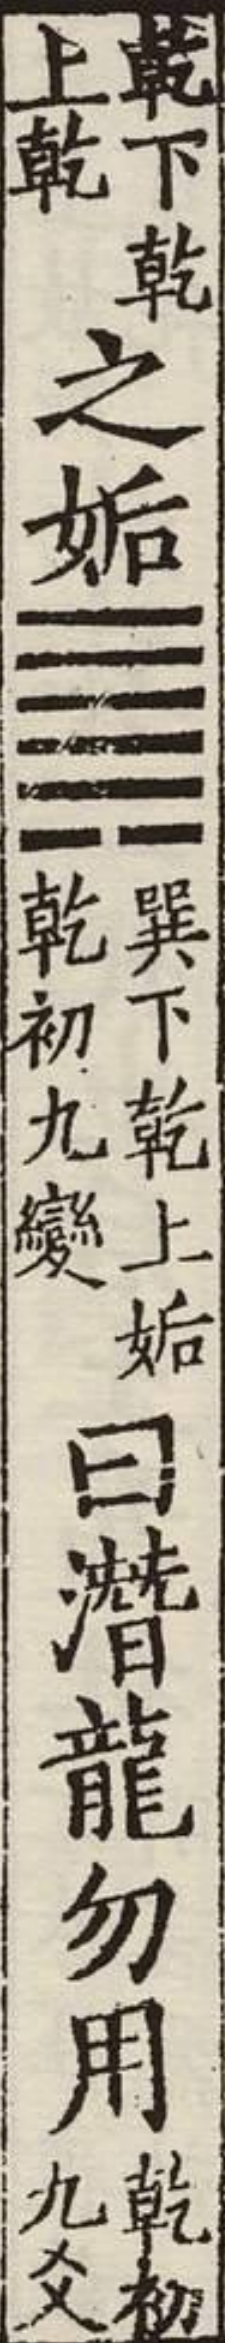 乾下乾
上乾
之姤
巽下乾上姤
乾初九變
曰潛龍勿用
乾初
九爻